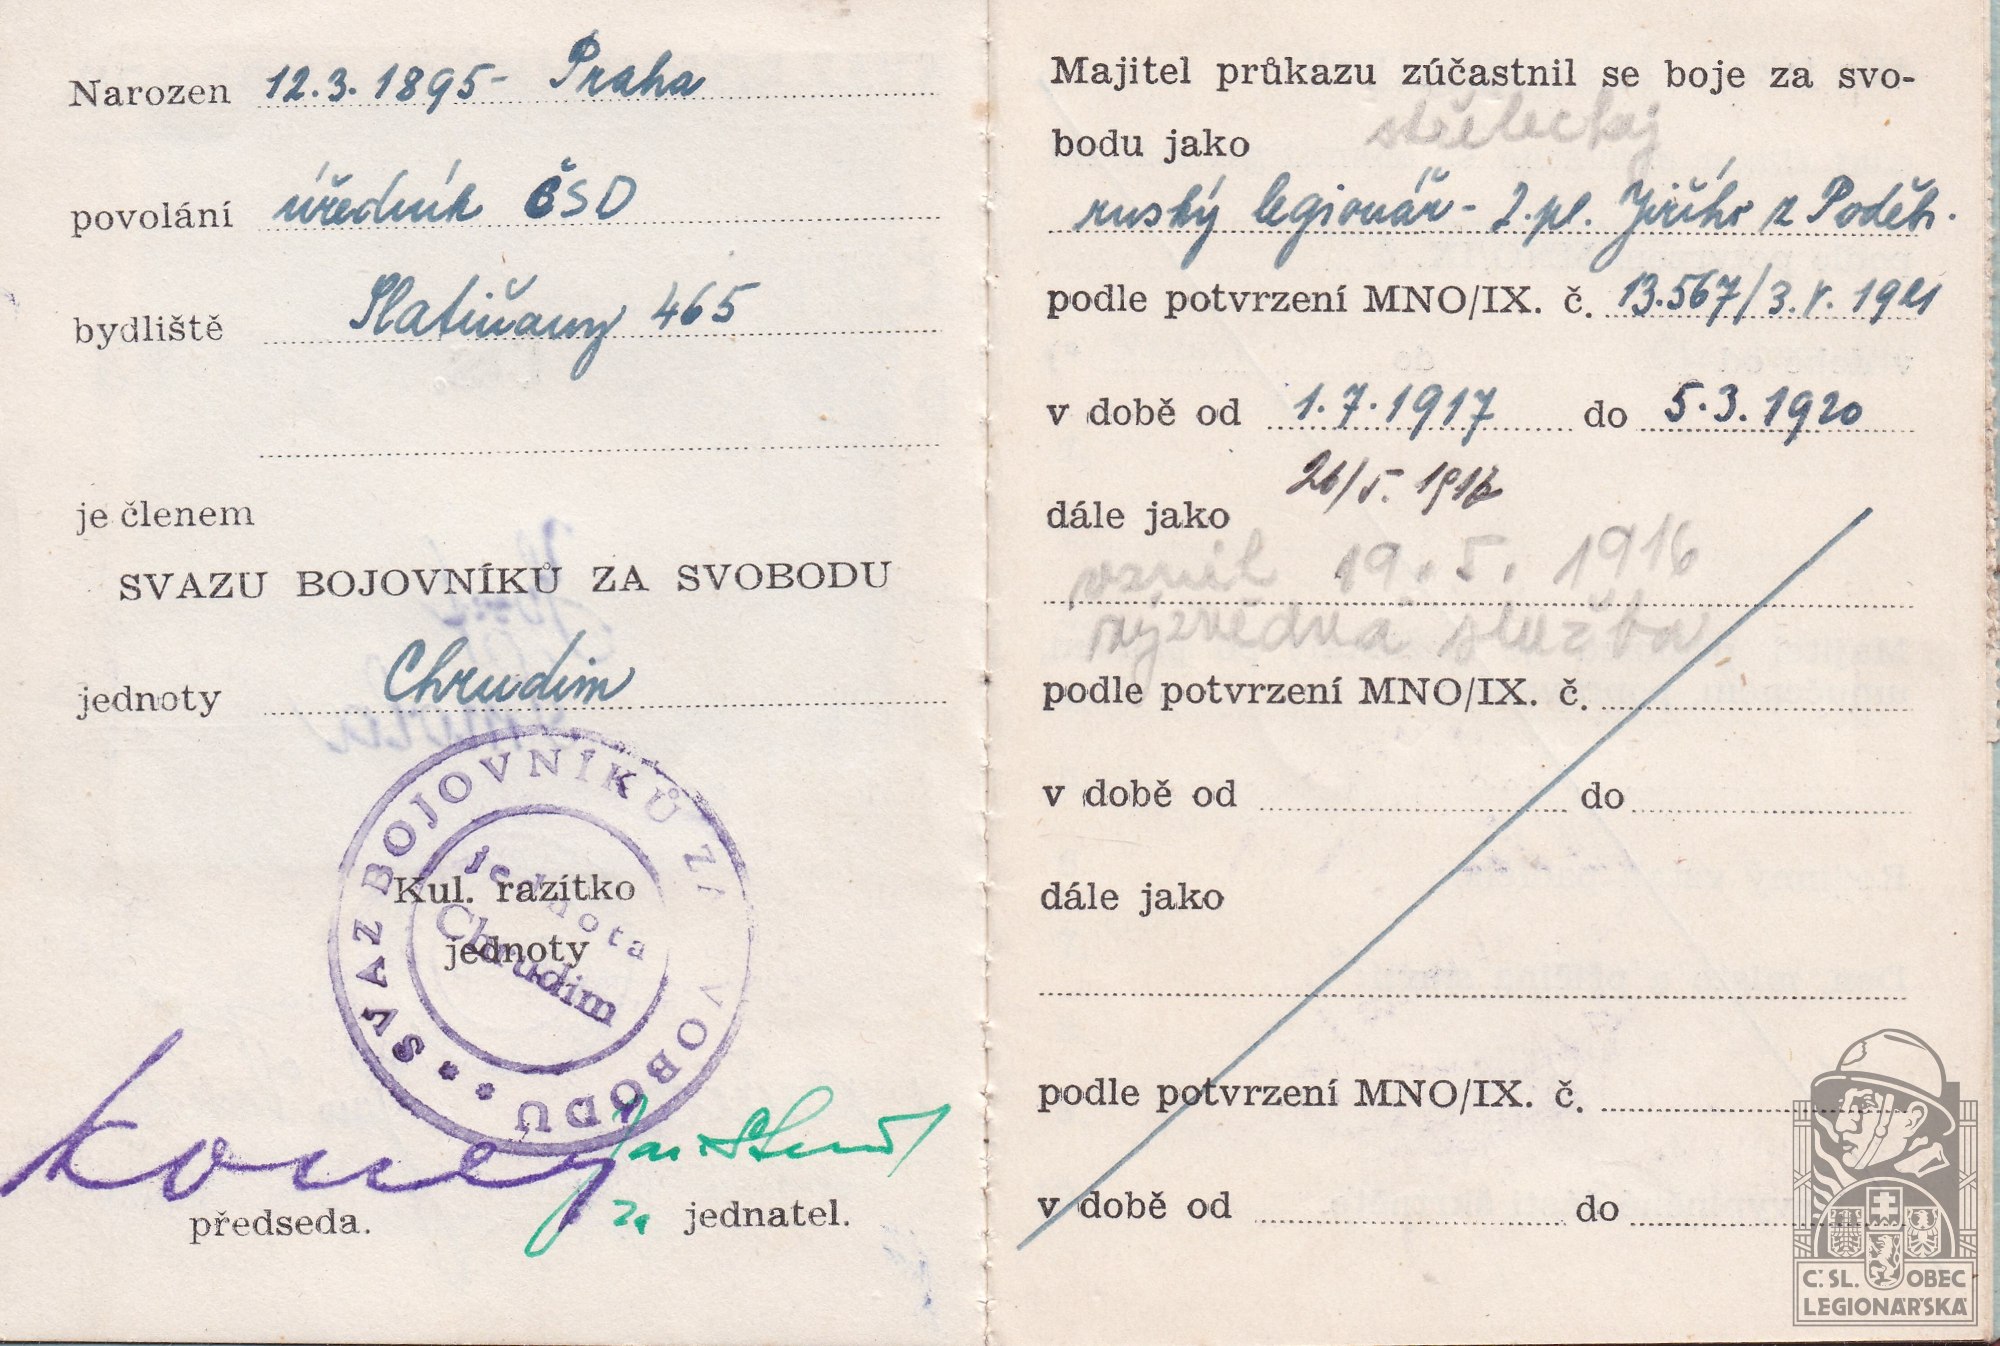 Narozen 12.3.1895 - Praha
povolání úředník ČSD
bydliště Slatiňany 465
je členem
SVAZU BOJOVNÍKŮ ZA SVOBODU
jednoty Chrudim
SVAZ BOJOVNÍKŮ ZA SVOBODU
jednota
Chrudim
Kul. razítko
jednoty
předseda.
za jednatel.
Majitel průkazu zúčastnil se boje za svo-
bodu jako
ruský legionář - 2. pl. Jiřího z Poděb.
podle potvrzení MNO/IX. č. 13.567/3.V. 1921
v době od 1.7.1917 do 5.3.1920
26/5.
dále jako
19. 5. 1916
výzvědná služba
podle potvrzení MNO/IX. č.
v době od do
dále jako
podle potvrzení MNO/IX. č.
v době od do
Č. SL. OBEC
LEGIONÁŘSKÁ